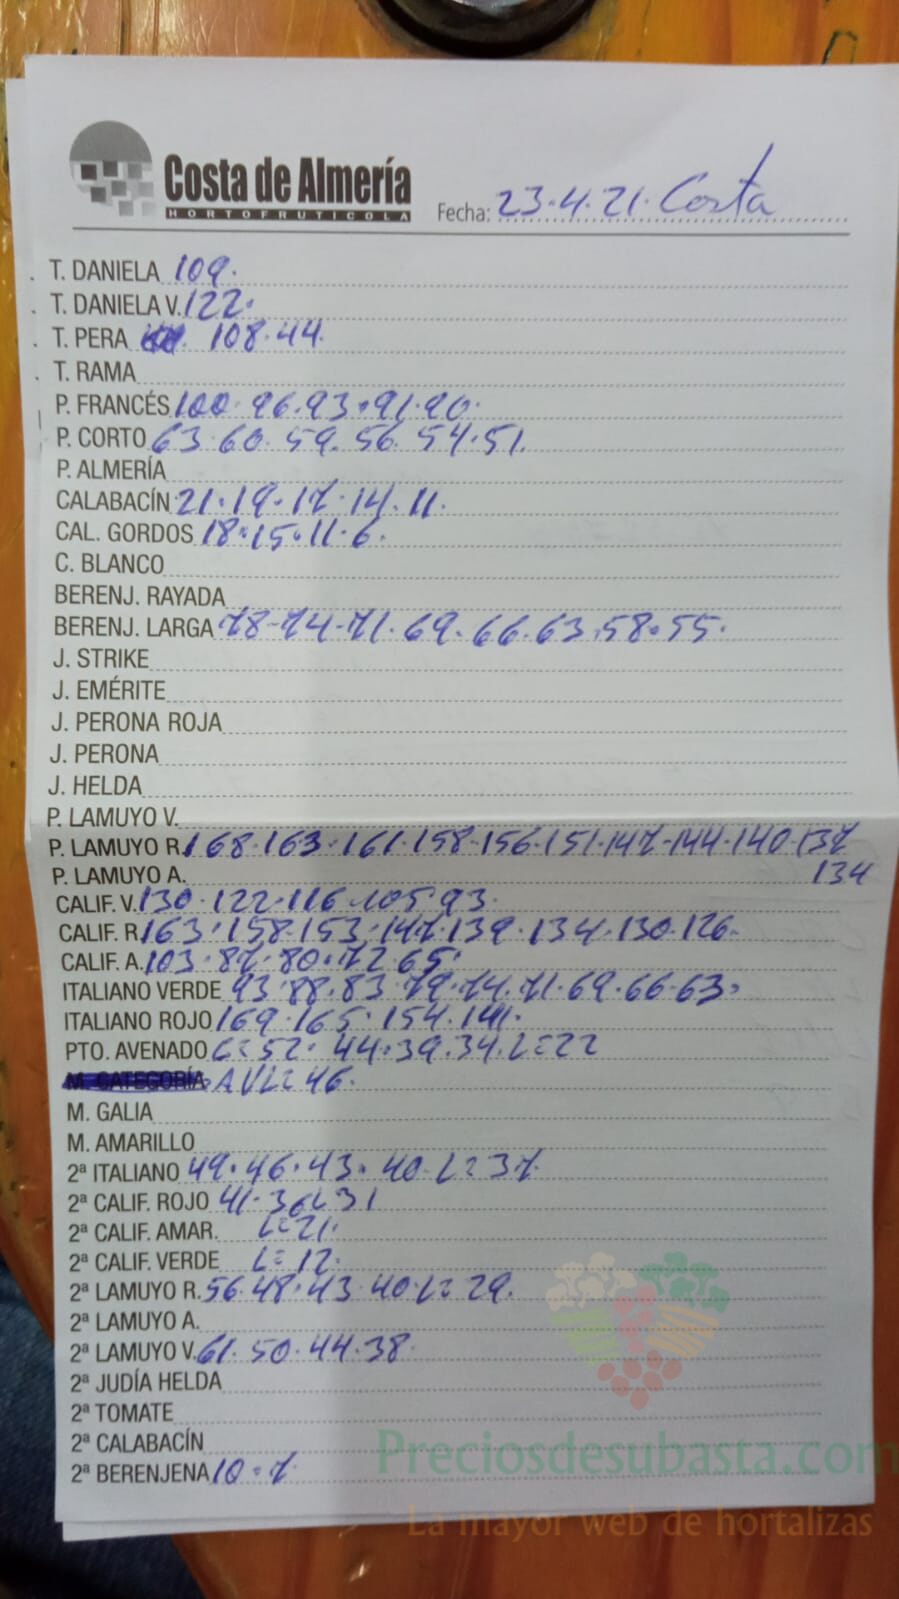 Costa de Almería
HORTOFRUTICOLA
Fecha: 23.4.21. Costa
T. DANIELA 109.
T. DANIELA V. 122.
T. PERA 108.44.
T. RAMA
P. FRANCÉS 100.96.93.91.90.
P. CORTO 63.60.59.56.54.51.
P. ALMERÍA
CALABACÍN 21.19.17.14.11.
CAL. GORDOS 18.15.11.6.
C. BLANCO
BERENJ. RAYADA
BERENJ. LARGA 78-74-71.69.66.63.58.55.
J. STRIKE
J. EMÉRITE
J. PERONA ROJA
J. PERONA
J. HELDA
P. LAMUYO V.
P. LAMUYO R. 168.163.161.158-156-151.147-144.140.137
P. LAMUYO A. 134
CALIF. V. 130.122.116.105.93.
CALIF. R. 163.158.153.147.139.134.130.126.
CALIF. A. 103.87.80.72.65.
ITALIANO VERDE 93.88.83.79.74.71.69.66.63.
ITALIANO ROJO 169.165.154.141.
PTO. AVENADO C=52. 44.39.34.L=22
M. CATEGORÍA AVL=46.
M. GALIA
M. AMARILLO
2ª ITALIANO 49.46.43.40.L=37.
2ª CALIF. ROJO 41.36L31
2ª CALIF. AMAR. L=21.
2ª CALIF. VERDE L=12.
2ª LAMUYO R. 56.48.43.40.L=29.
2ª LAMUYO A.
2ª LAMUYO V. 61.50.44.38.
2ª JUDÍA HELDA
2ª TOMATE
2ª CALABACÍN
2ª BERENJENA 10.7.
Preciosdesubasta.com
La mayor web de hortalizas